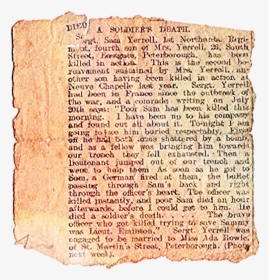 DIED
A SOLDIER'S DEATH.
Sergt. Sam Yerrell, 1st Northants. Regi-
ment, fourth son of Mrs. Yerrell, 26, South
Street, Eastgate, Peterborough, has been
killed in action. This is the second be-
reavement sustained by Mrs. Yerrell, an-
other son having been killed in action at
Neuve Chapelle last year. Sergt. Yerrell
had been in France since the outbreak of
the war, and a comrade, writing on July
20th says: "Poor Sam has been killed this
morning. I have been up to his company
and found out all about it. To-night I am
going to see him buried respectably.
off he had both arms shattered by a bomb,
and as a fellow was bringing him towards
our trench they fell exhausted. Then a
lieutenant jumped out of our trench and
went to help them. As soon as he got to
Sam, a German fired at them, the bullet
passing through Sam's back and right
through the officer's heart. The officer was
killed instantly, and poor Sam died an hour
afterwards, before I could get to him. He
died a soldier's death. The brave
officer who got killed trying to save Sammy
was Lieut. Sergt. Yerrell was
engaged to be married to Miss Ada Bowle,
of St. Martin's Street, Peterborough. (Photo
next week).